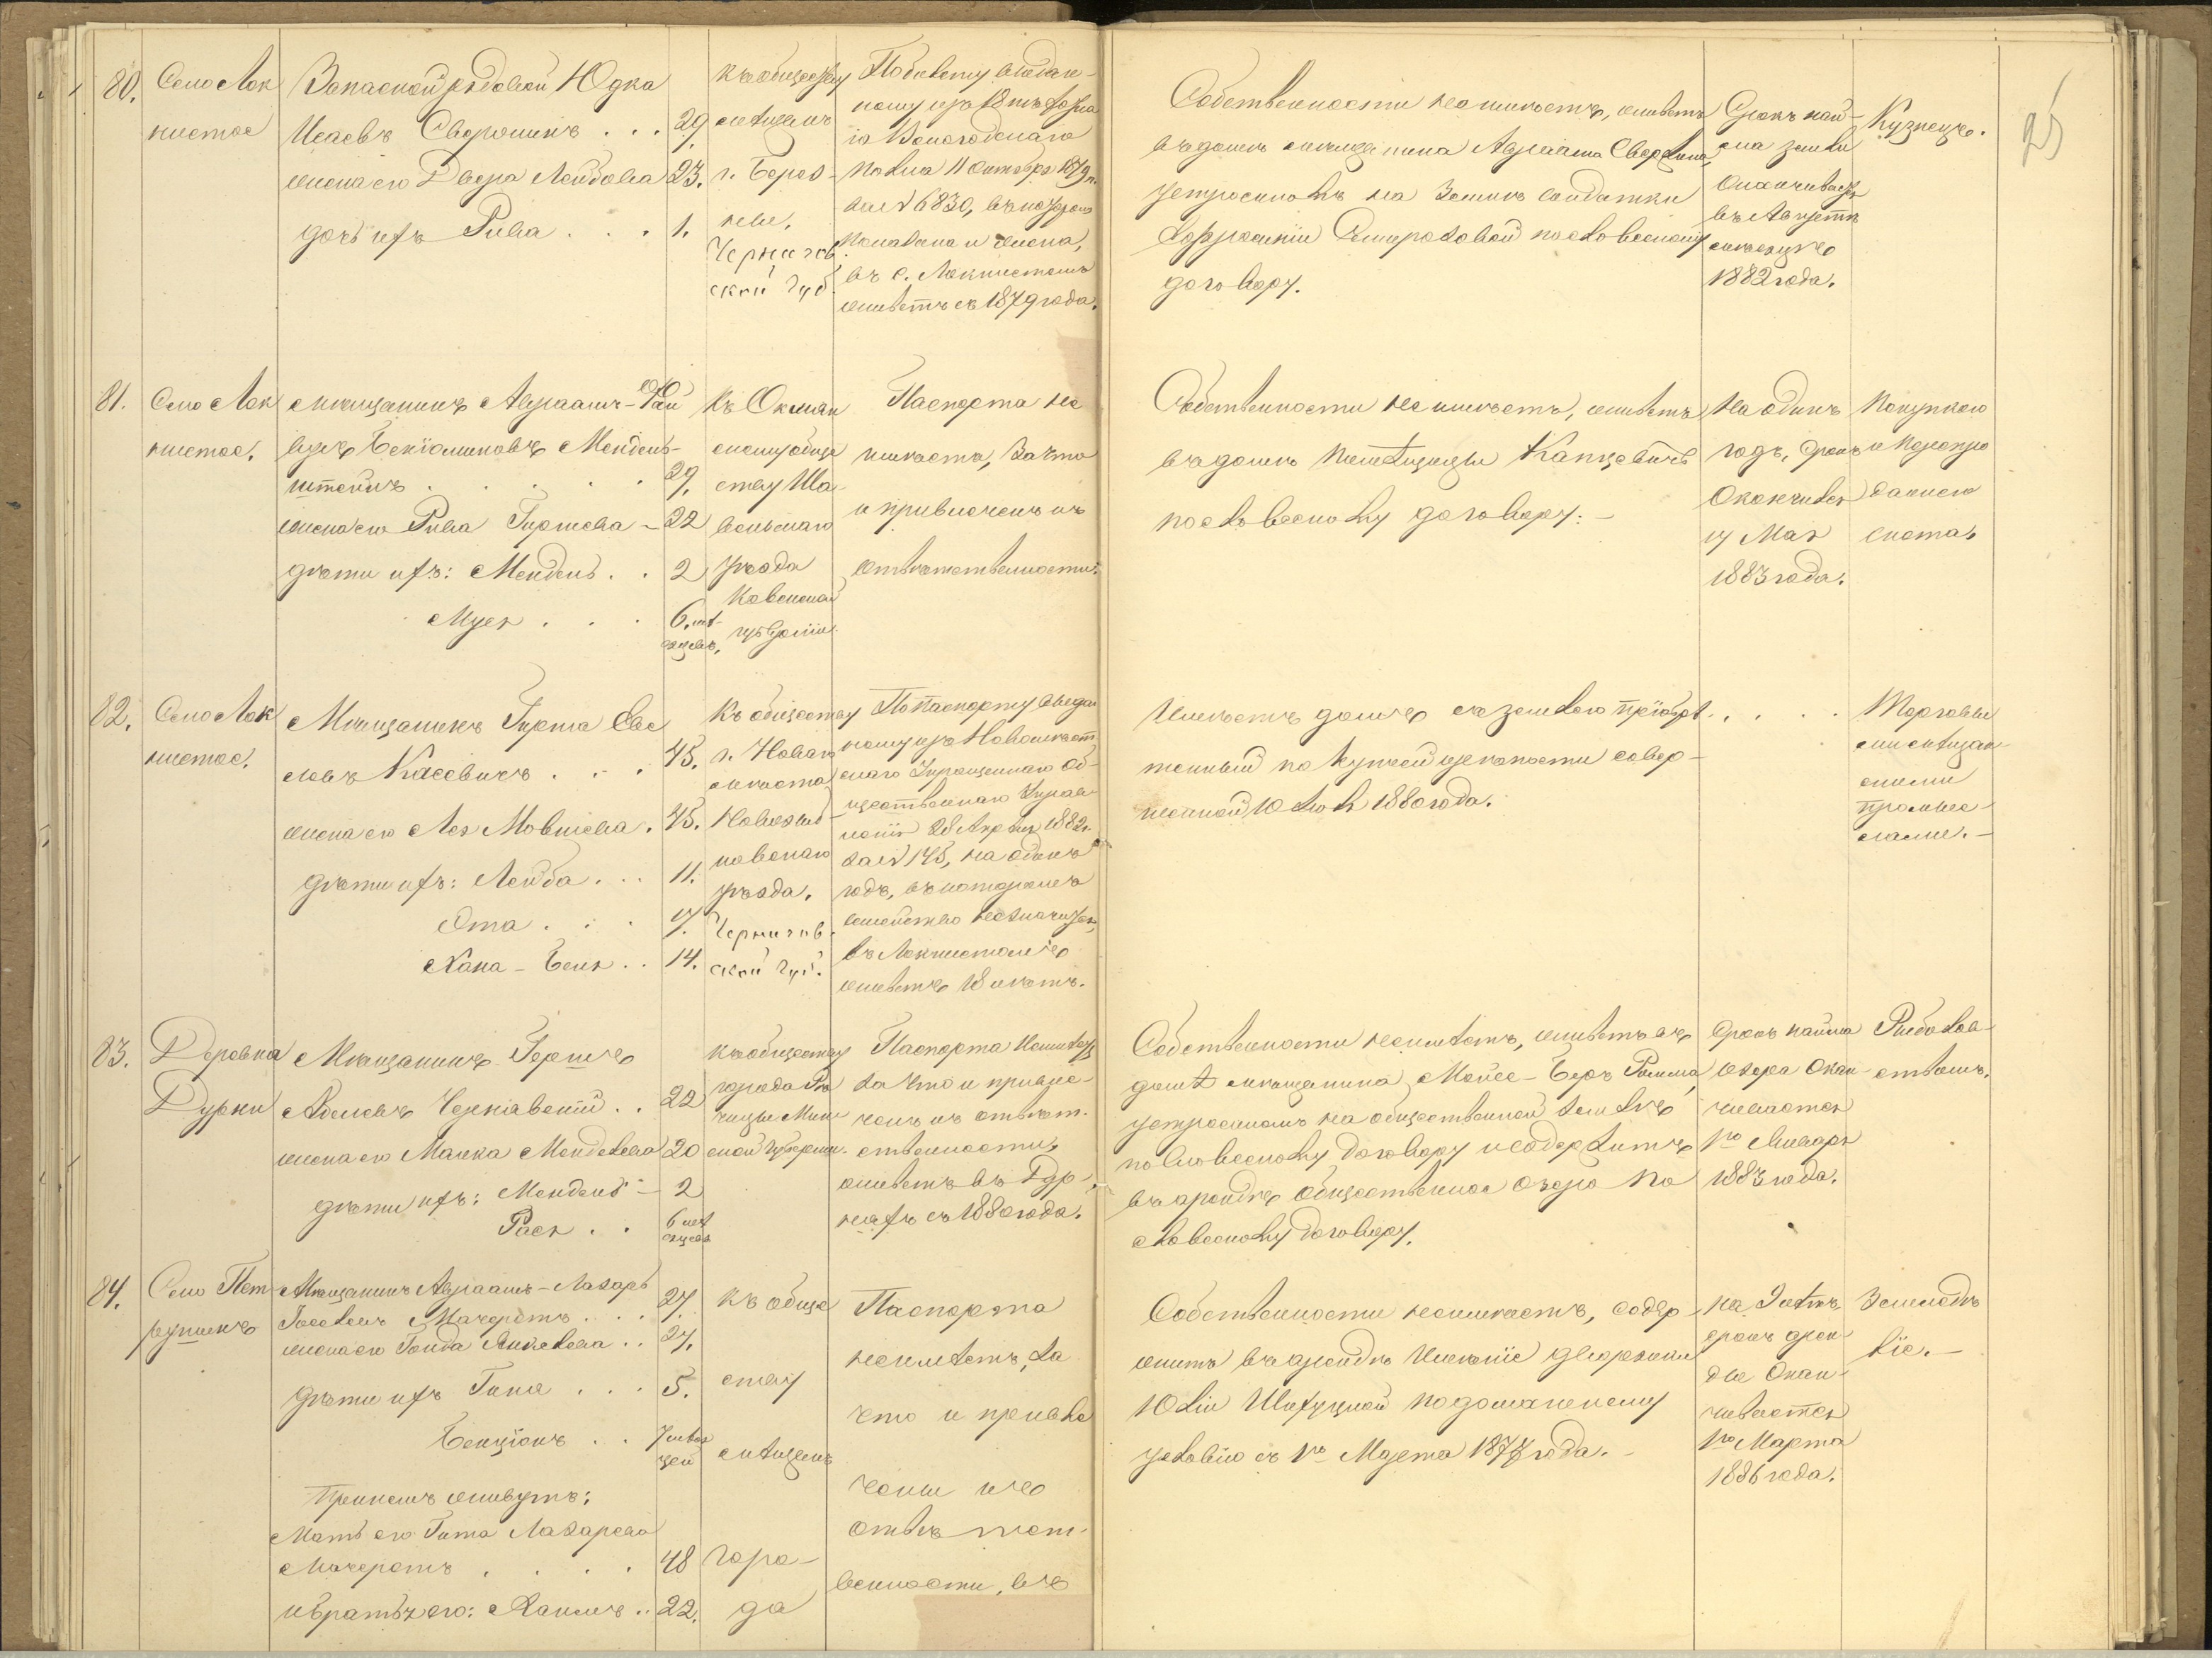 25
80.
Село Лок
нистое
Запасной рядовой Юдка
Исаевъ Сверчинъ . . . 29.
жена его Двера Лейбова 23.
дочь ихъ Рива . . . 1.
къ обществу
мѣщанъ
г. Берез-
неце,
Чернигов
ской губ.
По билету выдан-
ному изъ
11 Октября 1879 г.
за № 6830, въ которомъ
показана и жена,
въ с. Локнистомъ
живетъ съ 1879 года.
Собственности не имѣетъ, живетъ
въ домѣ мѣщанина Авраама
устроеномъ на землѣ солдатки
по словесному
договору.
Срокъ най-
ма земли
Оканчивается
въ Августѣ
мѣсяцѣ
1882 года.
Кузнецъ.
81.
Село Лок
нистое.
Мѣщанинъ Авраамъ-
Бенiоминовъ Мендель-
штейнъ . . . . . 29.
жена его Рива Гиршева - 22
дѣти ихъ: Мендель . . 2
Муся . . . 6 мѣ-
сяцевъ,
Къ Окмян
скому обще
ству Ша-
вельскаго
уѣзда
Ковенской
губернiи
Паспорта не
имѣетъ, за что
и привлеченъ къ
отвѣтственности.
Собственности не имѣетъ, живетъ
въ домѣ помѣщицы Капцевичъ
по словесному договору: -
На одинъ
годъ, срокъ
Оканчивается
17 Мая
1883 года.
Покупкою
и перепро
дажею
скота.
82.
Село Лок
нистое.
Мѣщанинъ Гирша Еве
левъ Касевичъ . . . 45.
жена его Лея Мовшева . 45.
дѣти ихъ: Лейба . . . 11.
Ота . . . 7.
Хана - Бейля . . 14.
Къ обществу
г. Новаго
мѣста
Новозыб-
ковскаго
уѣзда.
Чернигов-
ской губ.
По паспорту выдан
ному изъ Новомѣст
скаго Упрощеннаго Об-
щественнаго Управ
ленiя 28 Апрѣля 1882 г.
за № 145, на одинъ
годъ, въ которомъ
семейство не значится,
въ Локнистомъ
живетъ 18 лѣтъ.
Имѣетъ домъ съ землею прiобрѣ- . . . .
тенный по купчей крѣпости совер-
шенной 10 Iюля 1880 года.
Торговы
ми мѣщан
скими
промыс-
лами. -
83.
Деревня
Дурни
Мѣщанинъ Гершъ
Абелевъ Чернiавскiй . . 22
жена его Малка Менделева 20
дѣти ихъ: Мендель - 2
Рася . . 6 мѣ
сяцевъ
Къ обществу
города Рѣ
чицы Мин
ской губернiи.
Паспорта не имѣетъ
за что и привле-
ченъ къ отвѣт-
ственности,
живетъ въ Дур-
няхъ съ 1880 года.
Собственности не имѣетъ, живетъ въ
домѣ мѣщанина Мойсе-Беръ
устроеномъ на общественной землѣ
по словесному договору и содержитъ
въ арендѣ общественное озеро по
словесному договору.
Срокъ найма
озера Окан-
чивается
1го Января
1883 года.
Рыболов
ствомъ.
84.
Село Пет
рушинъ
Мѣщанинъ Авраамъ-Лазарь
Iоселевъ Мачеретъ . . . 27.
жена его Голда Янкелева . . 27.
дѣти ихъ Гинда . . . 5.
Бенцiонъ . . 7 мѣся
цей
При немъ живутъ:
Мать его Гита Лазарева
Мачеретъ . . . . 48
и братъ его: Хаимъ . . 22.
къ обще
ству
мѣщанъ
горо-
да
Паспорта
не имѣетъ, за
что и привле
ченъ къ
отвѣтст-
венности, въ
Собственности не имѣетъ, содер-
житъ въ арендѣ имѣнiе дворянки
Юлiи по домашнему
условiю съ 1го Марта 1877 года. -
на 9 лѣтъ
срокъ арен-
ды Окан-
чивается
1го Марта
1886 года.
Земледѣ
лiе. -